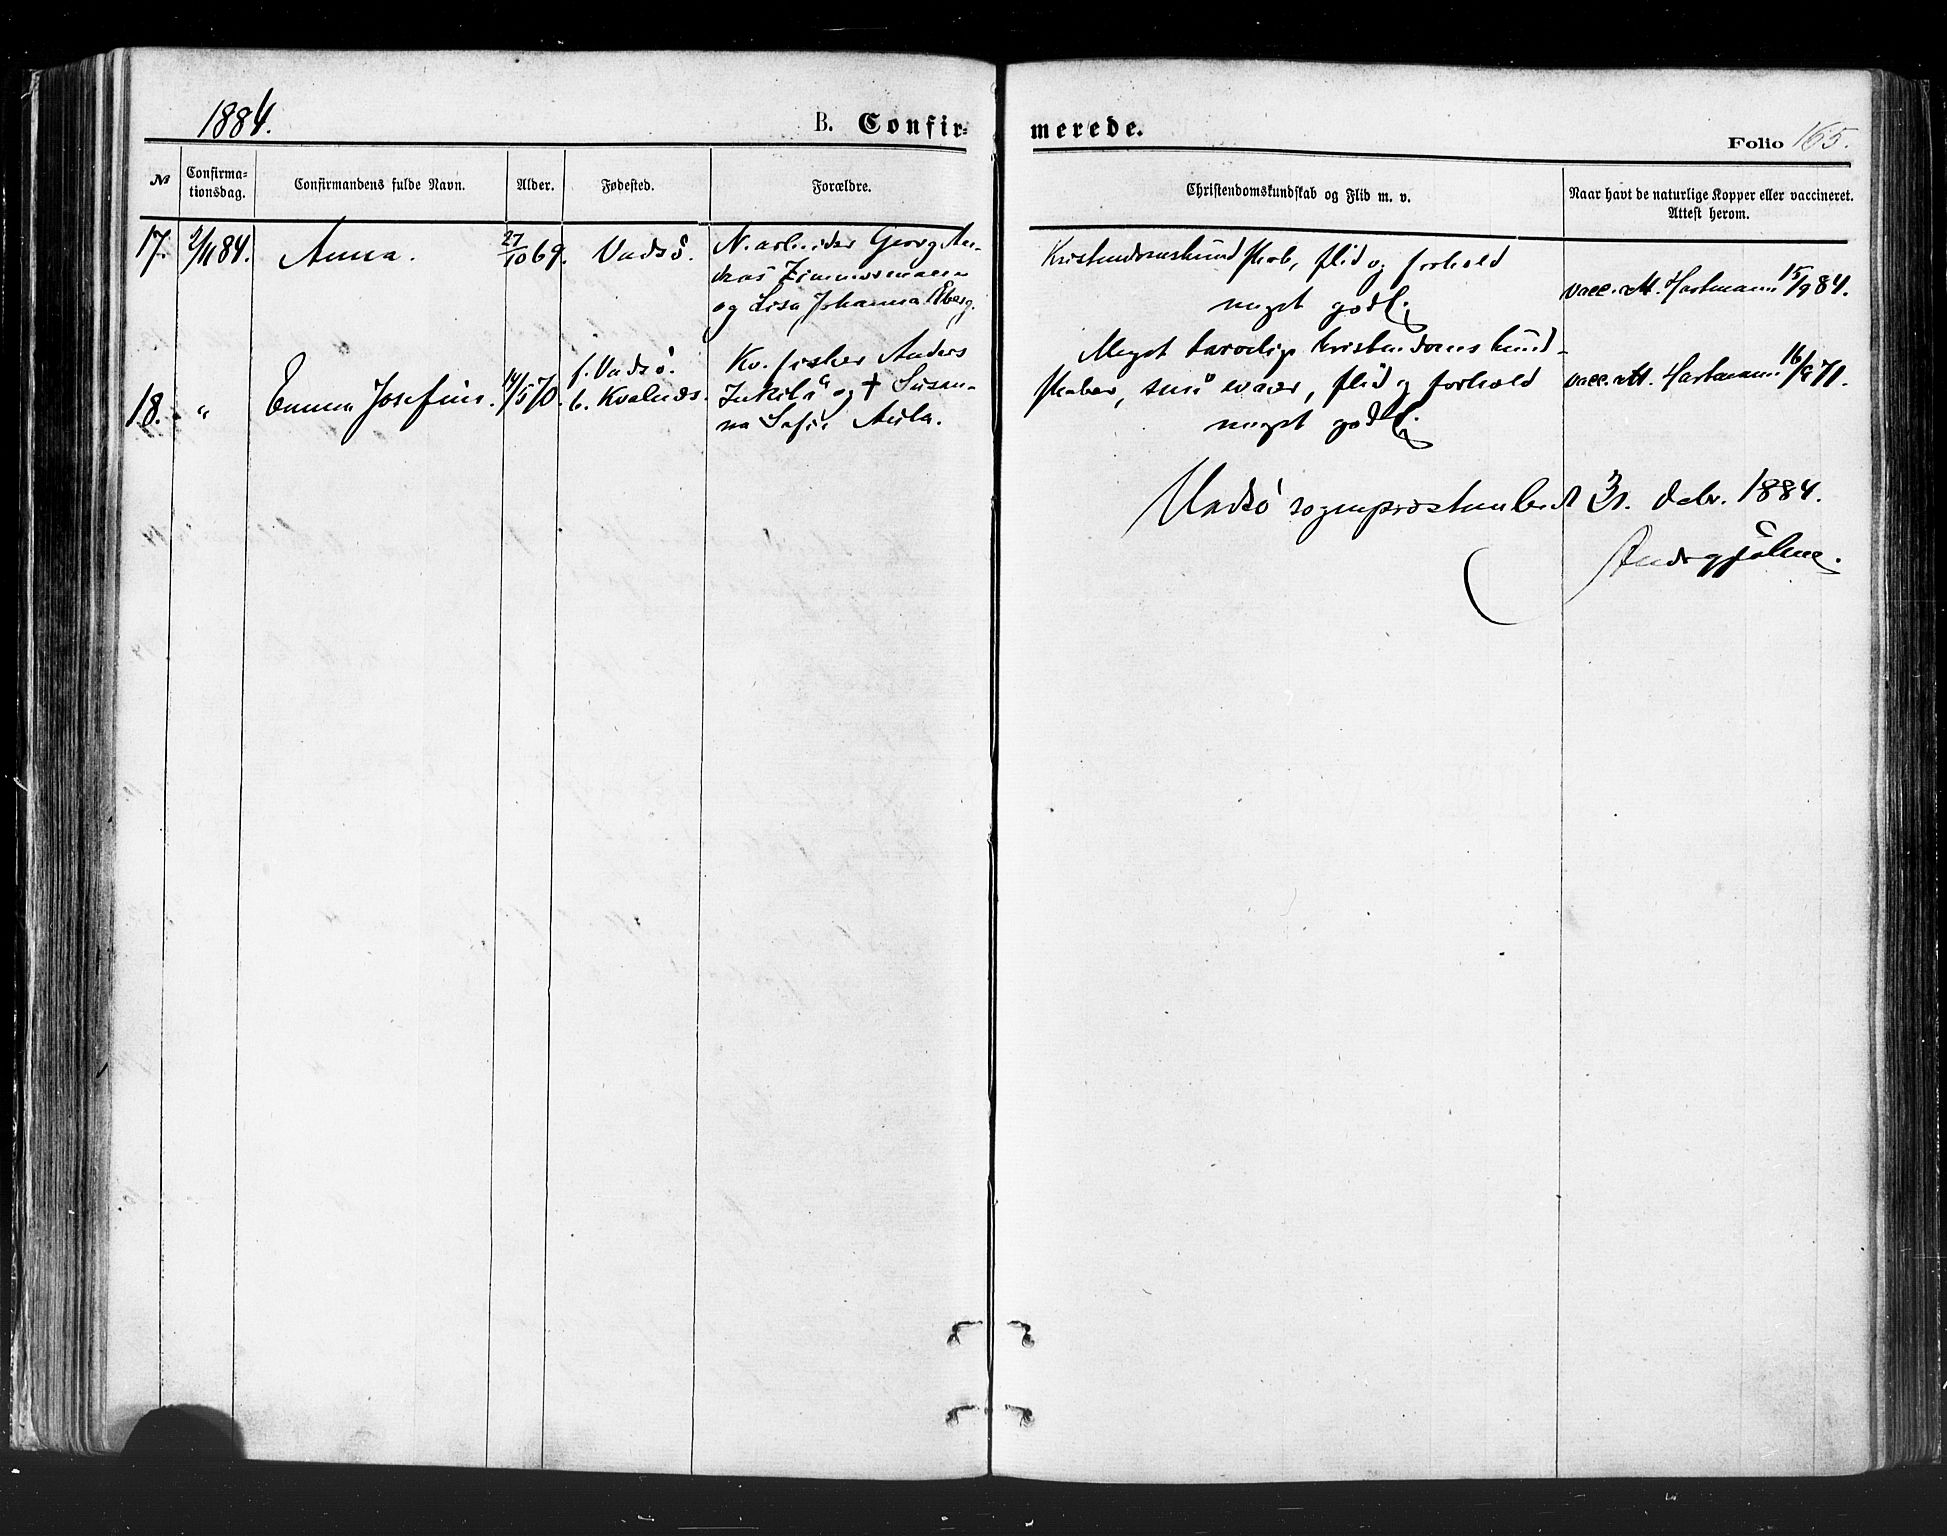 1884.
B. Confir-
merede.
Folio 165.
№
Confirma-
tionsdag.
Confirmandens fulde Navn.
Alder.
Fødested.
Forældre.
Christendomskundskab og Flid m. v.
Naar havt de naturlige Kopper eller vaccineret.
Attest herom.
17.
2/11 84.
Anna.
27/10 69.
Vadsö.
N. arbeider Georg An-
dreas Zimmermann
og Lisa Johanna Åberg.
Kristendomskundskab, flid og forhold
meget godt.
vacc. att. Hartmann 15/9 84.
18.
"
Emma Josefine.
14/5 70.
f. Vadsö.
b. Kvalnes.
Kv. fisker Anders
Inkilä og † Susan-
na Sofie Aula.
Meget tarvelige kristendomskund-
skaber, små evner, flid og forhold
meget godt.
vacc. att. Hartmann 16/9 71.
Vadsö sogneprestembede 31. debr. 1884.